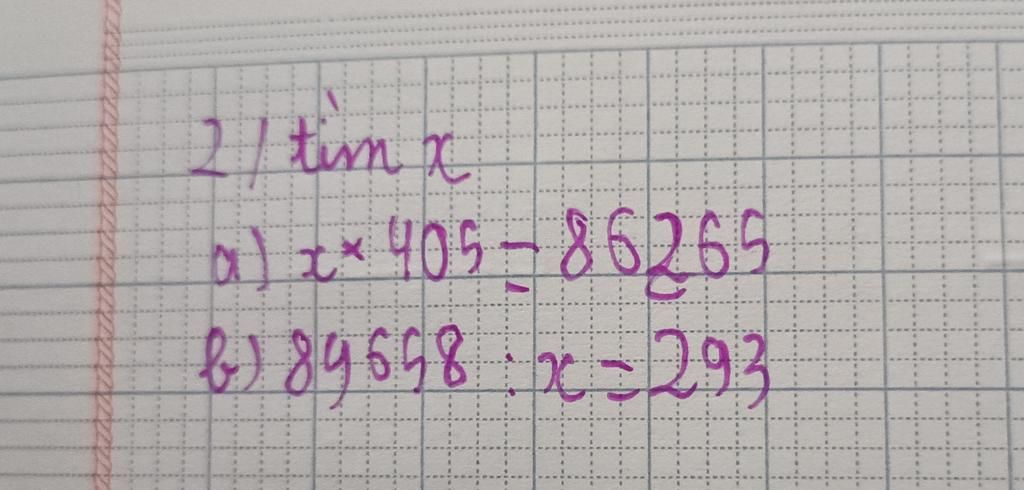 2/ tìm x
a) x × 405 = 86265
b) 89658 : x = 293